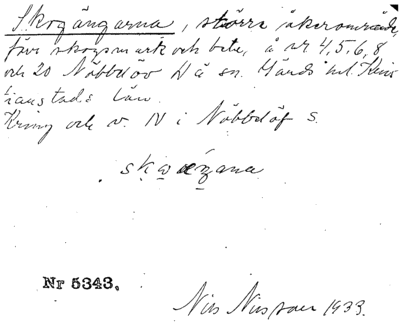 Skogängarna, större åkerområde,
förr skogsmark och bete, å nr 4, 5, 6, 8
och 20 Nöbbelöv H ä sn. Gärds hd. Kris
tianstads län.
Kring och v. N i Nöbbelöf s.
Nr 5343.
Nils Nilsson 1933.